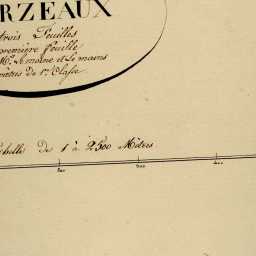 RZEAUX
trois Feuilles
première feuille
Mrs. Lemoine et Lemains
mètres de 1re Classe
chelle de 1 à 2500 Mètres